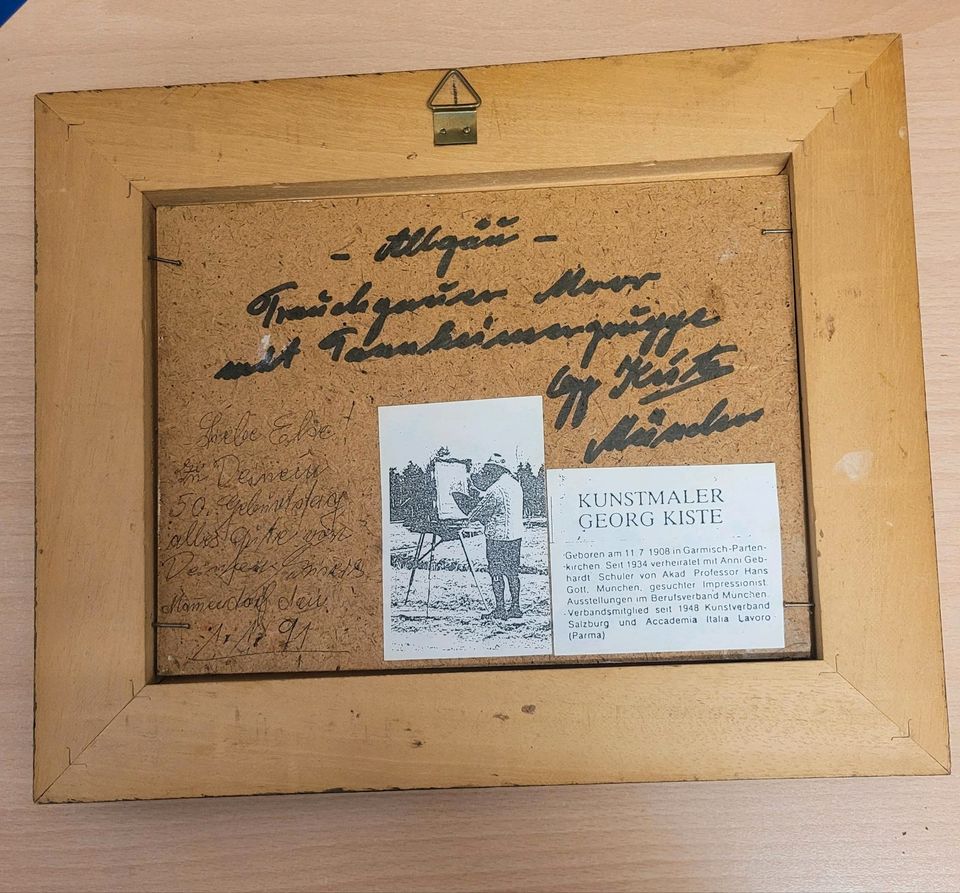 - Allgäu -
Trauchgauer Moor
mit Tannheimergruppe
Gg Kiste
München
Liebe Else!
zu Deinem
50. Geburtstag
alles Gute von
Deinen
den
91
KUNSTMALER
GEORG KISTE
Geboren am 11 7 1908 in Garmisch-Parten-
kirchen. Seit 1934 verheiratet mit Anni Geb-
hardt Schuler von Akad Professor Hans
Gott, München, gesuchter Impressionist.
Ausstellungen im Berufsverband München.
Verbandsmitglied seit 1948 Kunstverband
Salzburg und Accademia Italia Lavoro
(Parma)